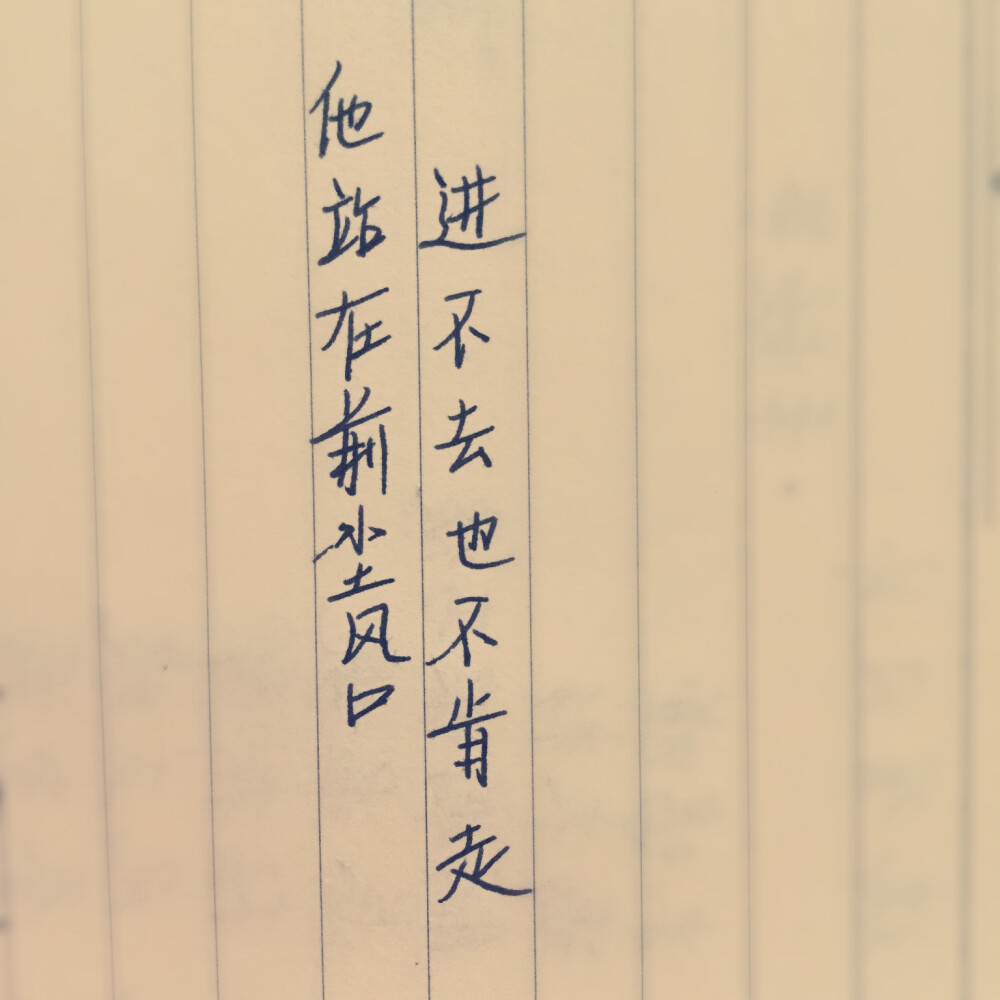 他站在前尘风口
进不去也不肯走